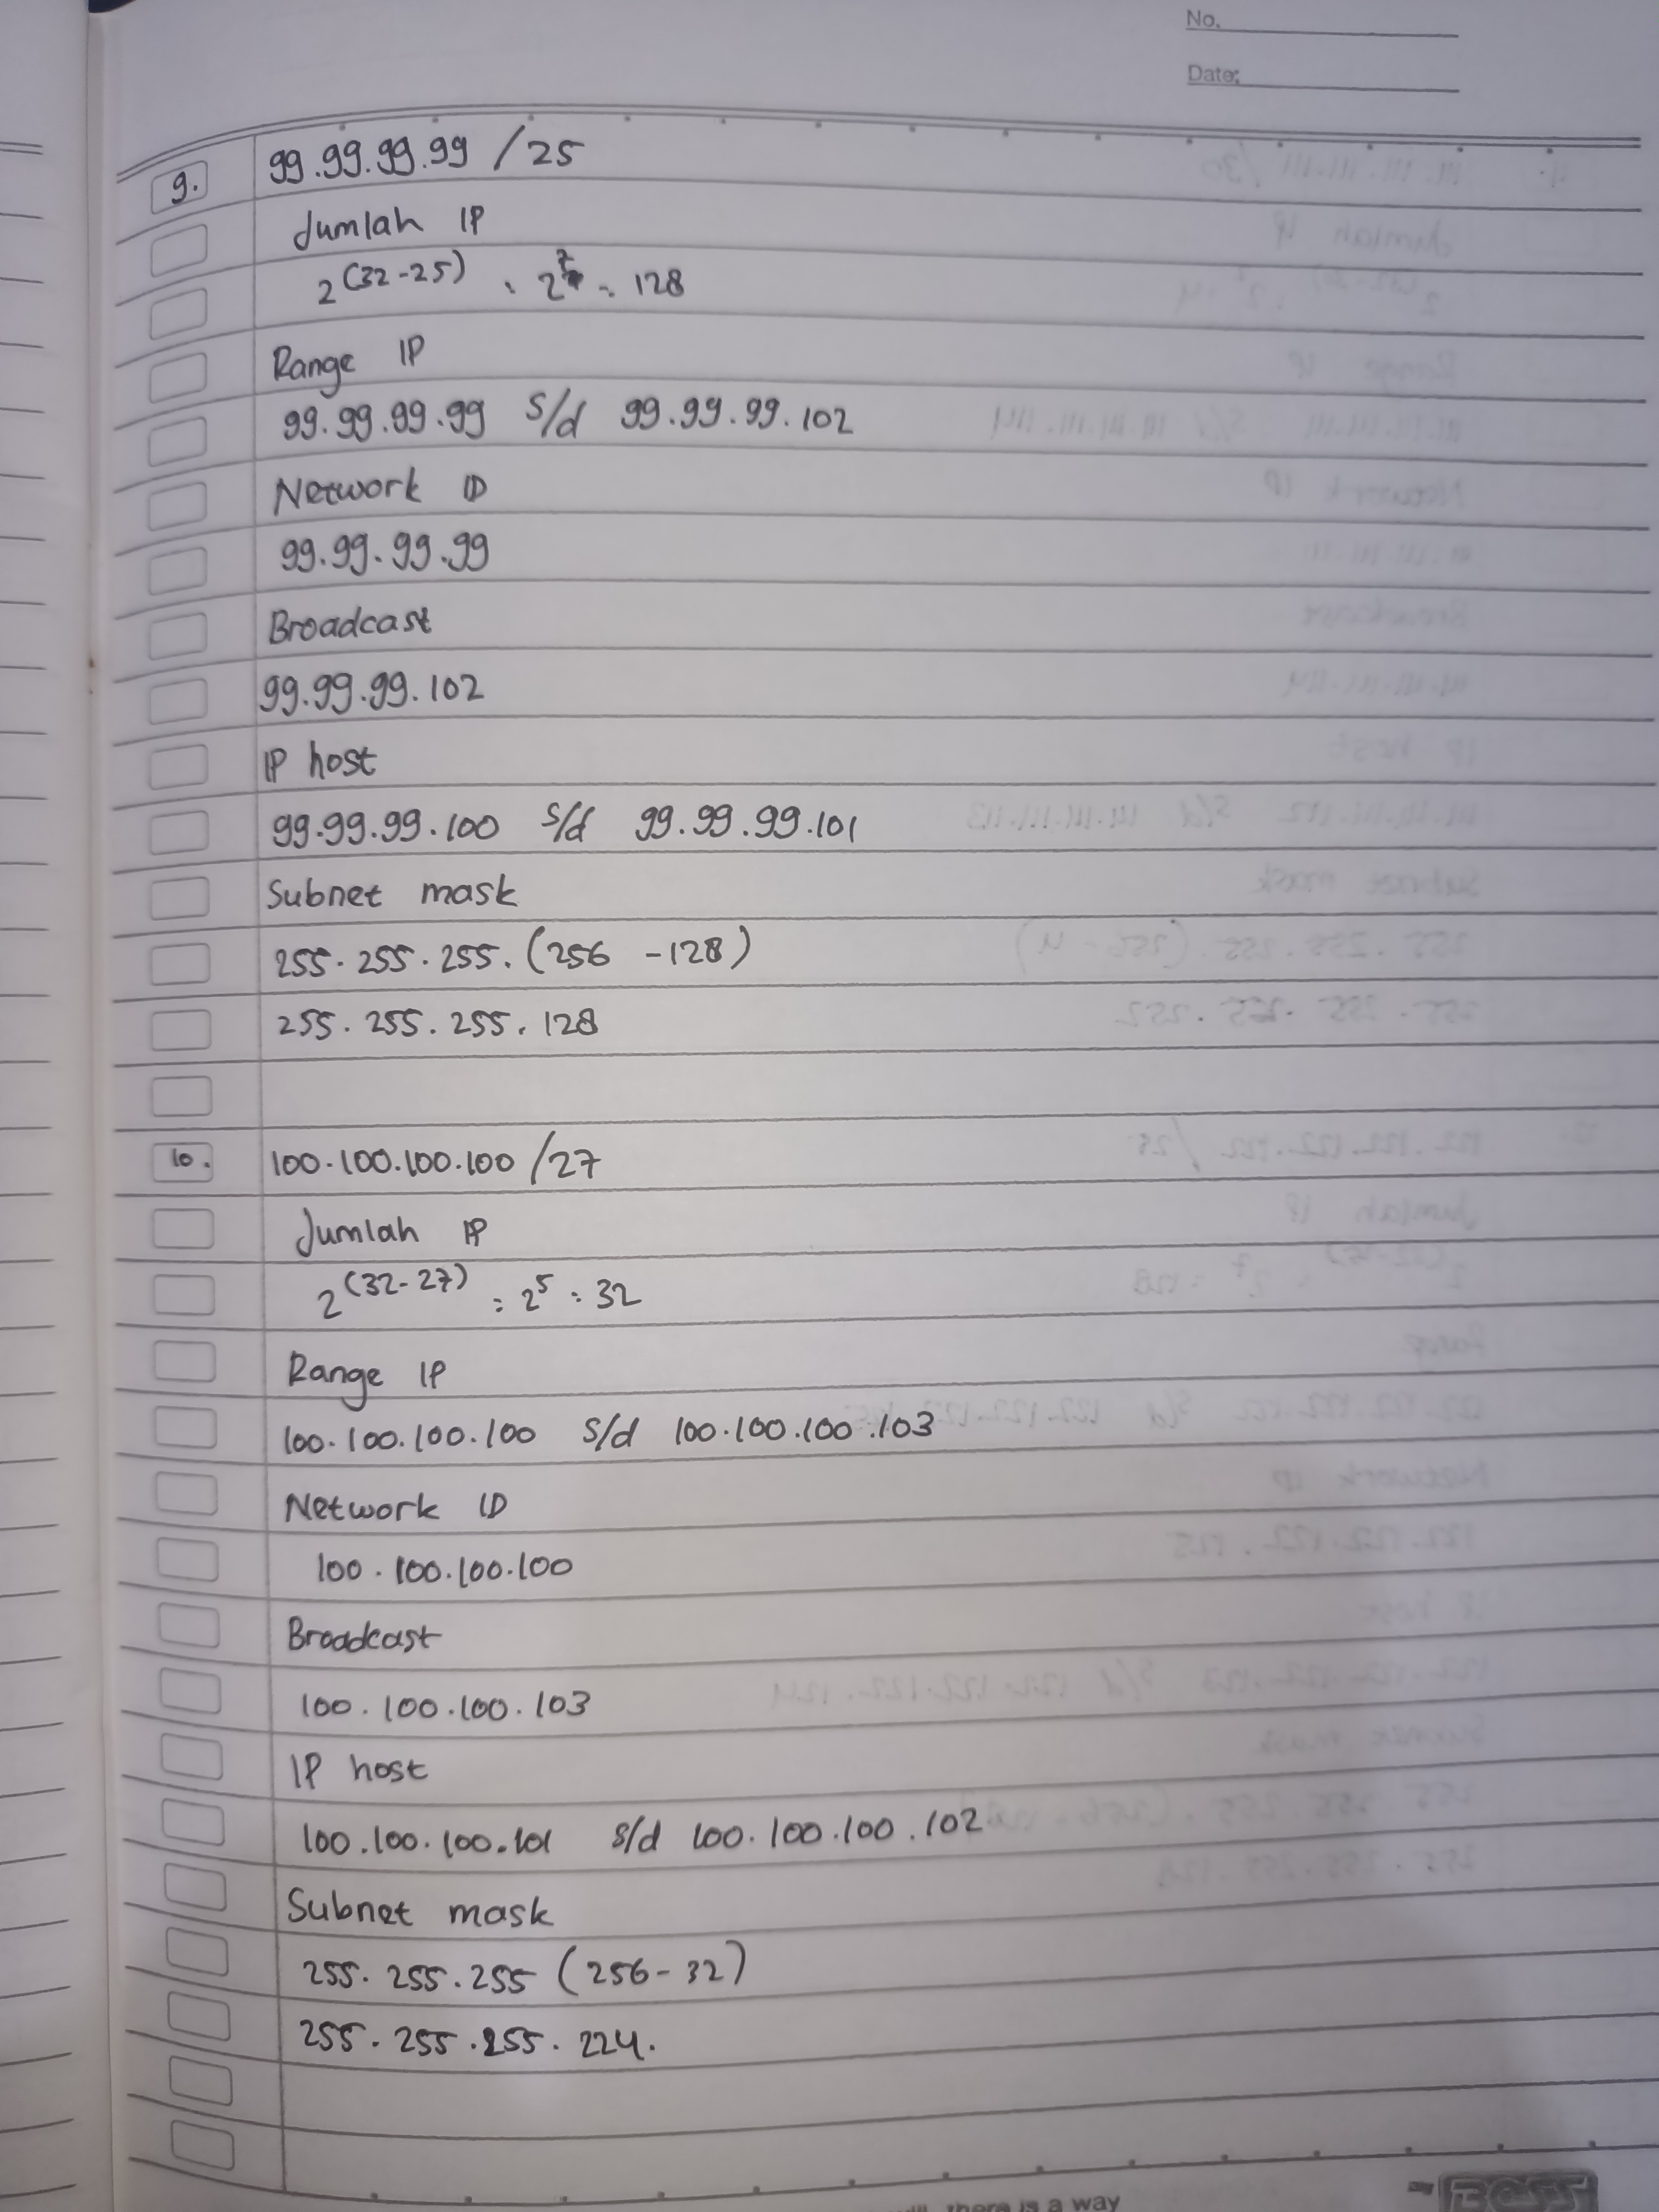 No.
Date:
9. 99.99.99.99 /25
Jumlah IP
2^(32-25) = 2^7 = 128
Range IP
99.99.99.99 s/d 99.99.99.102
Network ID
99.99.99.99
Broadcast
99.99.99.102
IP host
99.99.99.100 s/d 99.99.99.101
Subnet mask
255.255.255.(256 -128)
255.255.255.128
10. 100.100.100.100 /27
Jumlah IP
2^(32-27) = 2^5 = 32
Range IP
100.100.100.100 s/d 100.100.100.103
Network ID
100.100.100.100
Broadcast
100.100.100.103
IP host
100.100.100.101 s/d 100.100.100.102
Subnet mask
255.255.255 (256-32)
255.255.255.224.
there is a way
BOSS